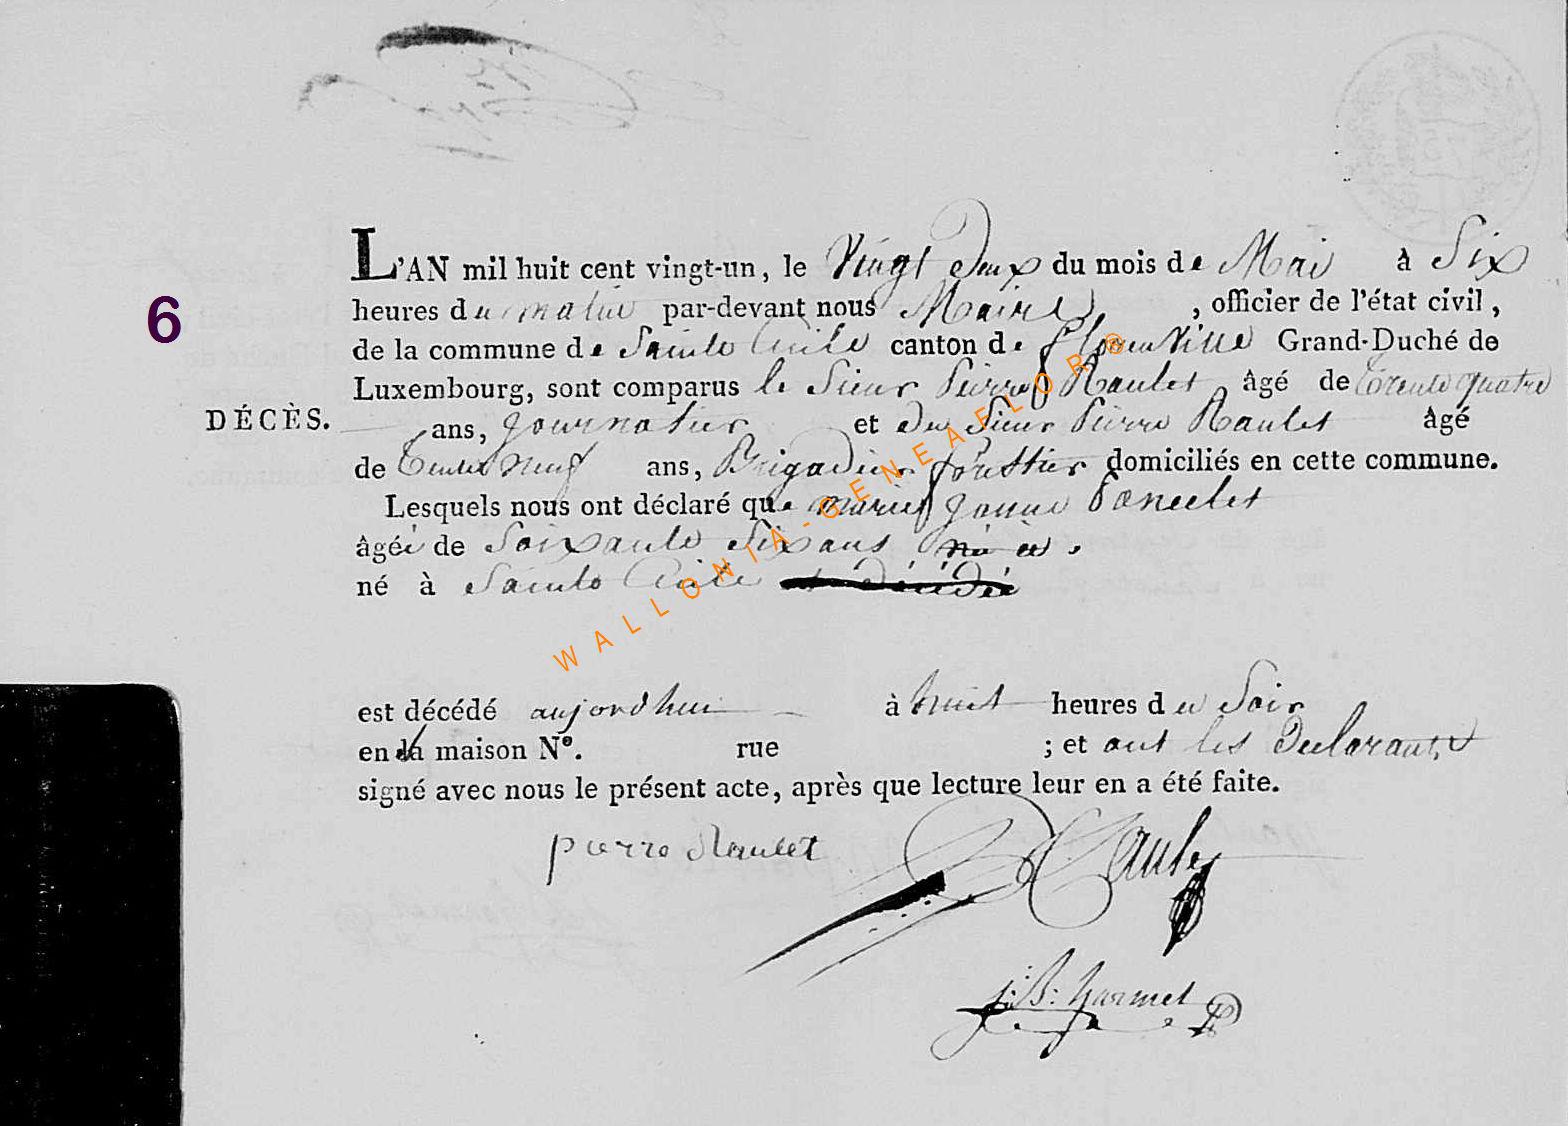 L'AN mil huit cent vingt-un, le Vingt Deux du mois de Mai à Six
6
heures du matin par-devant nous Maire , officier de l'état civil,
de la commune de Sainte Cécile canton de florenville Grand-Duché de
Luxembourg, sont comparus le Sieur Pierre Raulet âgé de Trente quatre
DÉCÈS.
ans, journalier et du Sieur Pierre Raulet âgé
de Trente neuf ans, Brigadier forestier domiciliés en cette commune.
Lesquels nous ont déclaré que marie jeanne Poncelet
âgée de Soixante Six ans
né à Sainte Cécile
est décédé aujordhui à huit heures du Soir
en la maison N°. rue ; et ont les Declarants
signé avec nous le présent acte, après que lecture leur en a été faite.
pierre Raulet
J: B: harmel
WALLONIA-GENEAFLOR®